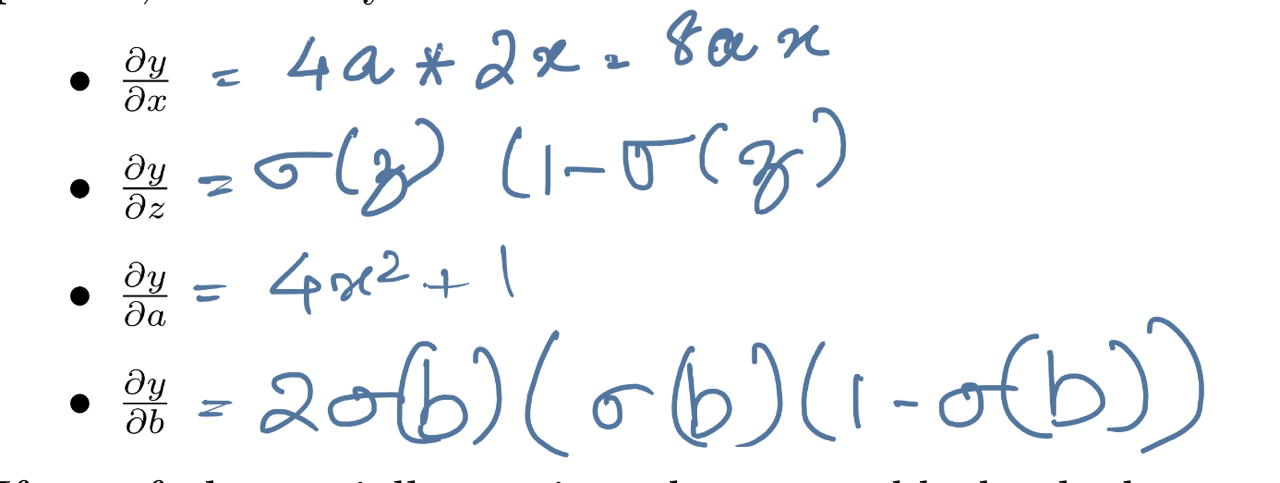 • ∂y/∂x = 4a * 2x = 8ax
• ∂y/∂z = σ(z) (1-σ(z)
• ∂y/∂a = 4x² + 1
• ∂y/∂b = 2σ(b)(σ(b)(1-σ(b)))